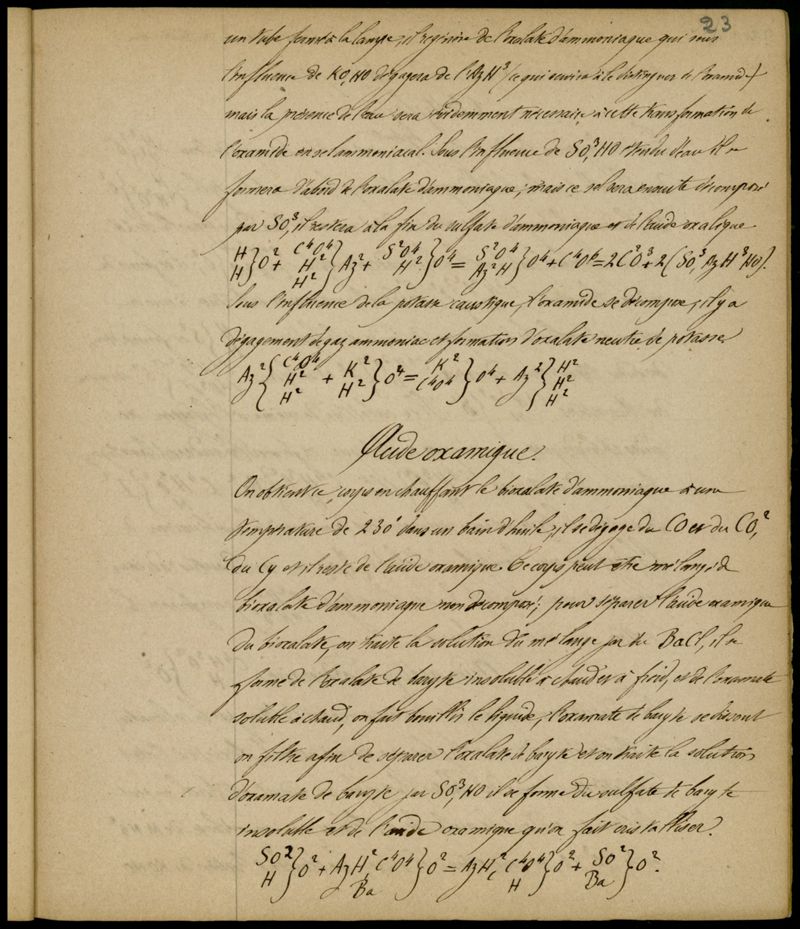 23
un tube fermé à la lampe, il se génère de l'oxalate d'ammoniaque qui sous
l'influence de KO,HO dégagera de l'AzH³ (ce qui servira à le distinguer de l'oxamide)
mais la présence de l'eau sera évidemment nécessaire à cette transformation de
l'oxamide en sel ammoniacal. Sous l'influence de SO,³HO étendu d'eau il se
formera d'abord de l'oxalate d'ammoniaque; mais ce sel sera ensuite décomposé
par SO,³ il restera à la fin du sulfate d'ammoniaque et de l'acide oxalique
H H } O² + C⁴O⁴ H² H² } Az² + S²O⁴ H² } O⁴ = S²O⁴ Az²H } O⁴ + C⁴O⁶ = 2C²O³ + 2(SO,³ AzH³HO).
Sous l'influence de la potasse caustique, l'oxamide se décompose, il y a
dégagement de gaz ammoniac et formation d'oxalate neutre de potasse
Az² { C⁴O⁴ H² H² + K² H² } O⁴ = K² C⁴O⁴ } O⁴ + Az² } H² H² H²
Acide oxamique.
On obtient ce corps en chauffant le bioxalate d'ammoniaque à une
température de 230° dans un bain d'huile, il se dégage du CO et du CO,²
du Cy et il reste de l'acide oxamique. Ce corps peut être mélangé de
bioxalate d'ammoniaque non décomposé; pour séparer l'acide oxamique
du bioxalate, on traite la solution du mélange par du BaCl, il se
forme de l'oxalate de baryte insoluble à chaud et à froid, et de l'oxamate
soluble à chaud, on fait bouillir le liquide, l'oxamate de baryte se dissout
on filtre afin de séparer l'oxalate de baryte et on traite la solution
d'oxamate de baryte par SO,³HO il se forme du sulfate de baryte
insoluble et de l'acide oxamique qu'on fait cristalliser.
SO² H } O² + AzH,² C⁴O⁴ Ba } O² = AzH,² C⁴O⁴ H } O² + SO² Ba } O².